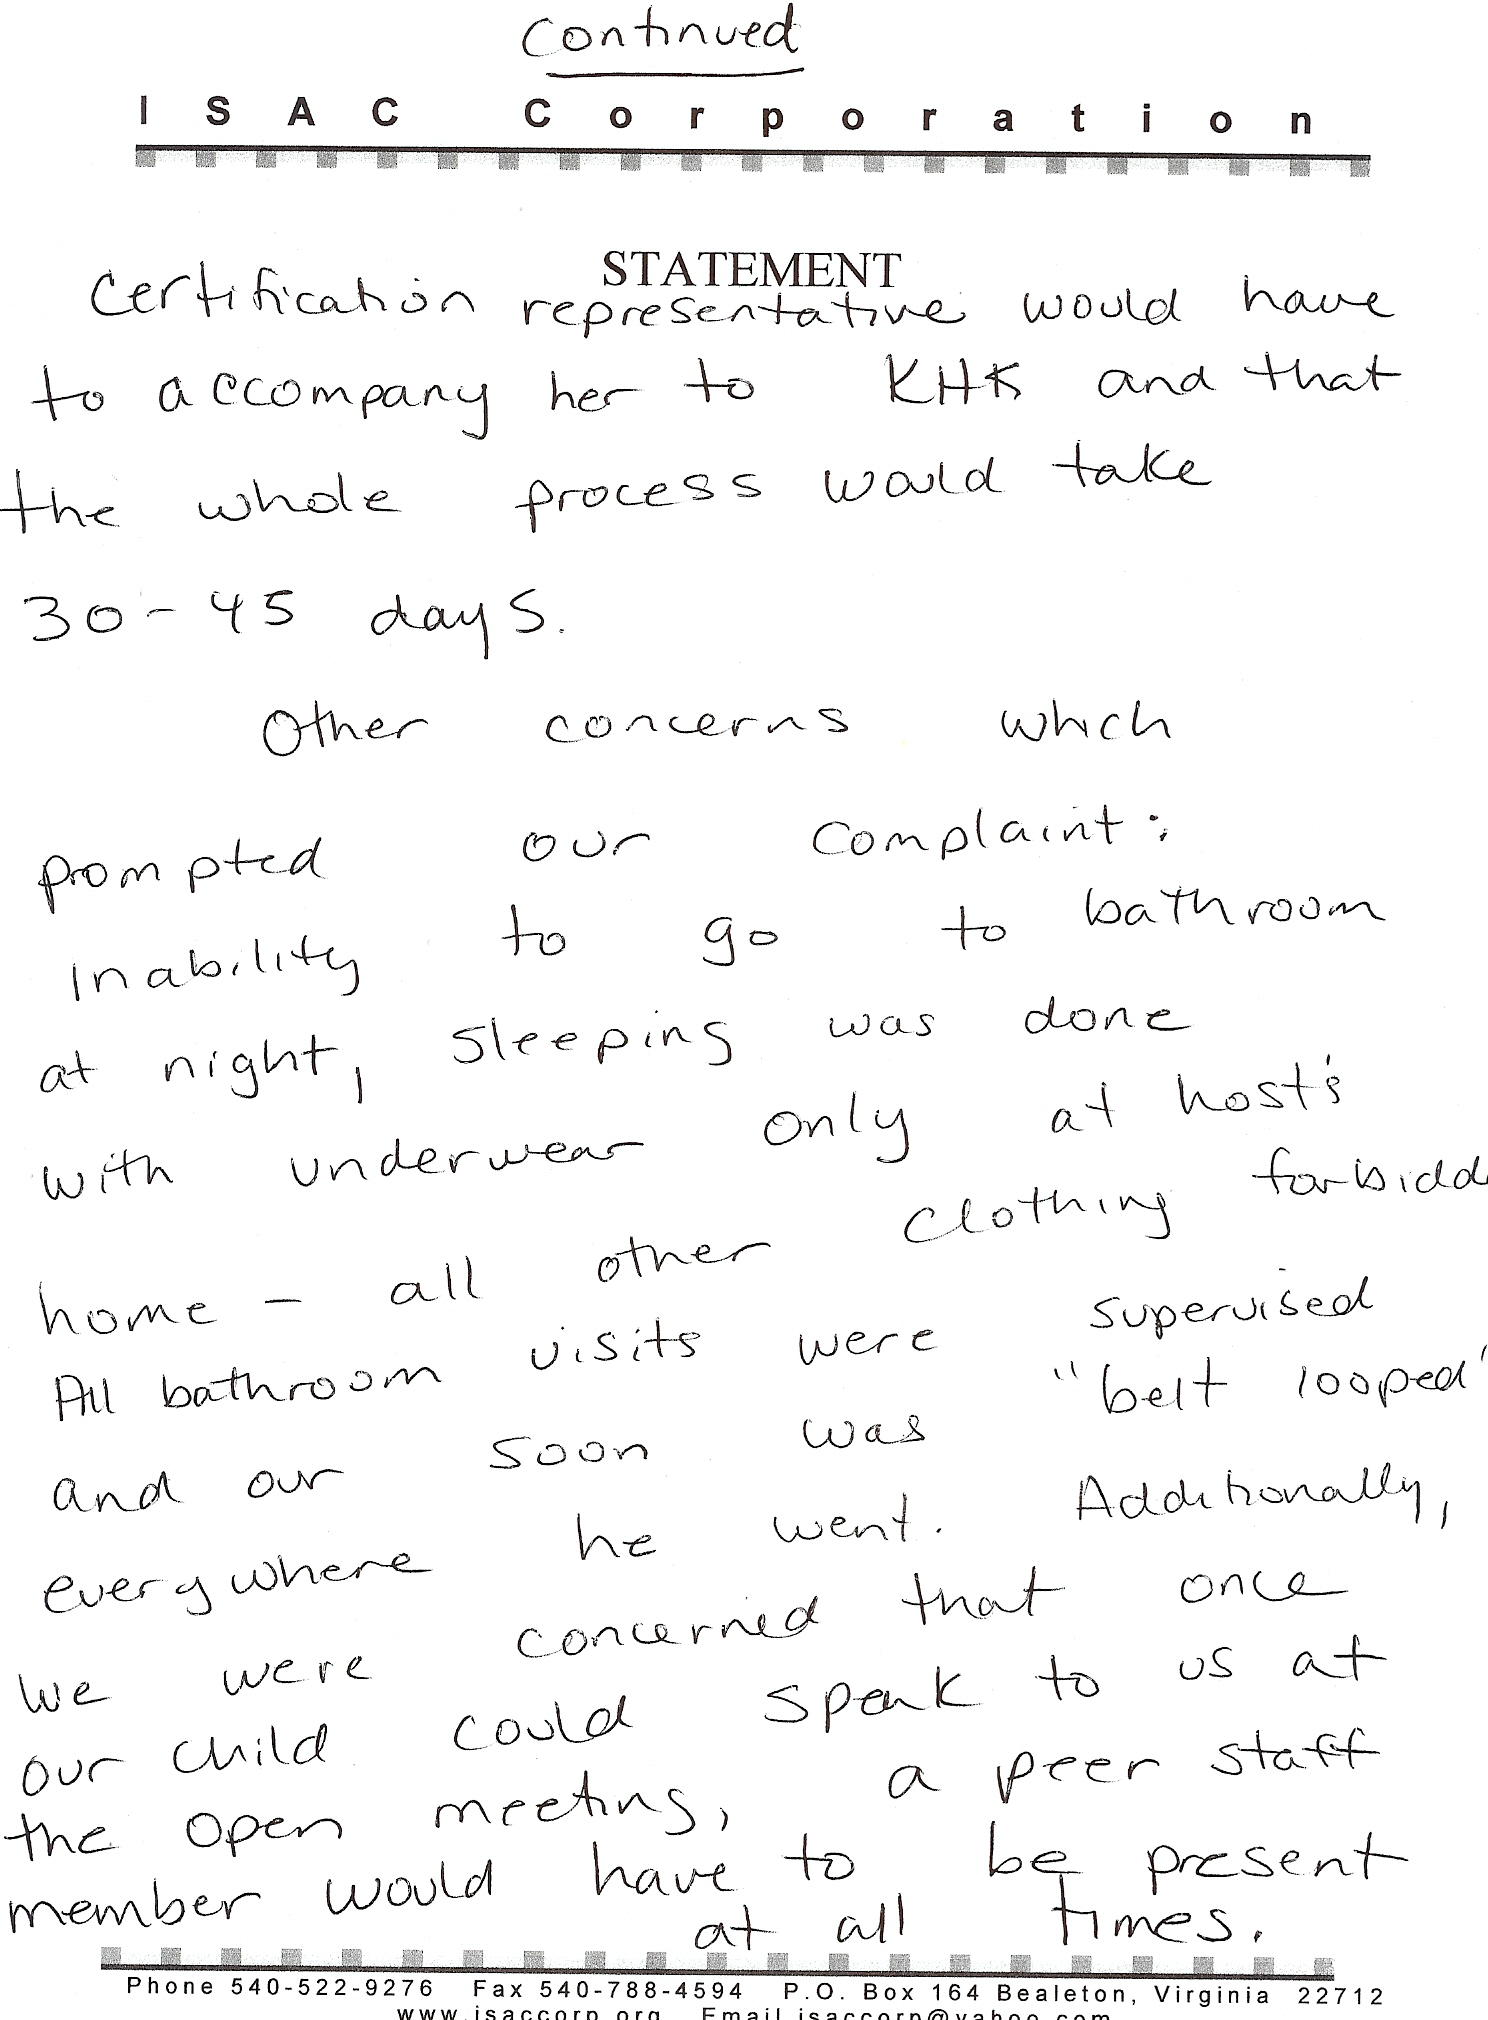 Continued
ISAC Corporation
STATEMENT
Certification representative would have
to accompany her to KHK and that
the whole process would take
30-45 days.
Other concerns which
prompted our complaint:
Inability to go to bathroom
at night, sleeping was done
with underwear only at host's
home - all other clothing forbidd
All bathroom visits were supervised
and our soon was "belt looped"
everywhere he went. Additionally,
we were concerned that once
our child could speak to us at
the open meeting, a peer staff
member would have to be present
at all times.
Phone 540-522-9276 Fax 540-788-4594 P.O. Box 164 Bealeton, Virginia 22712
www.isaccorp.org Email isaccorp@yahoo.com